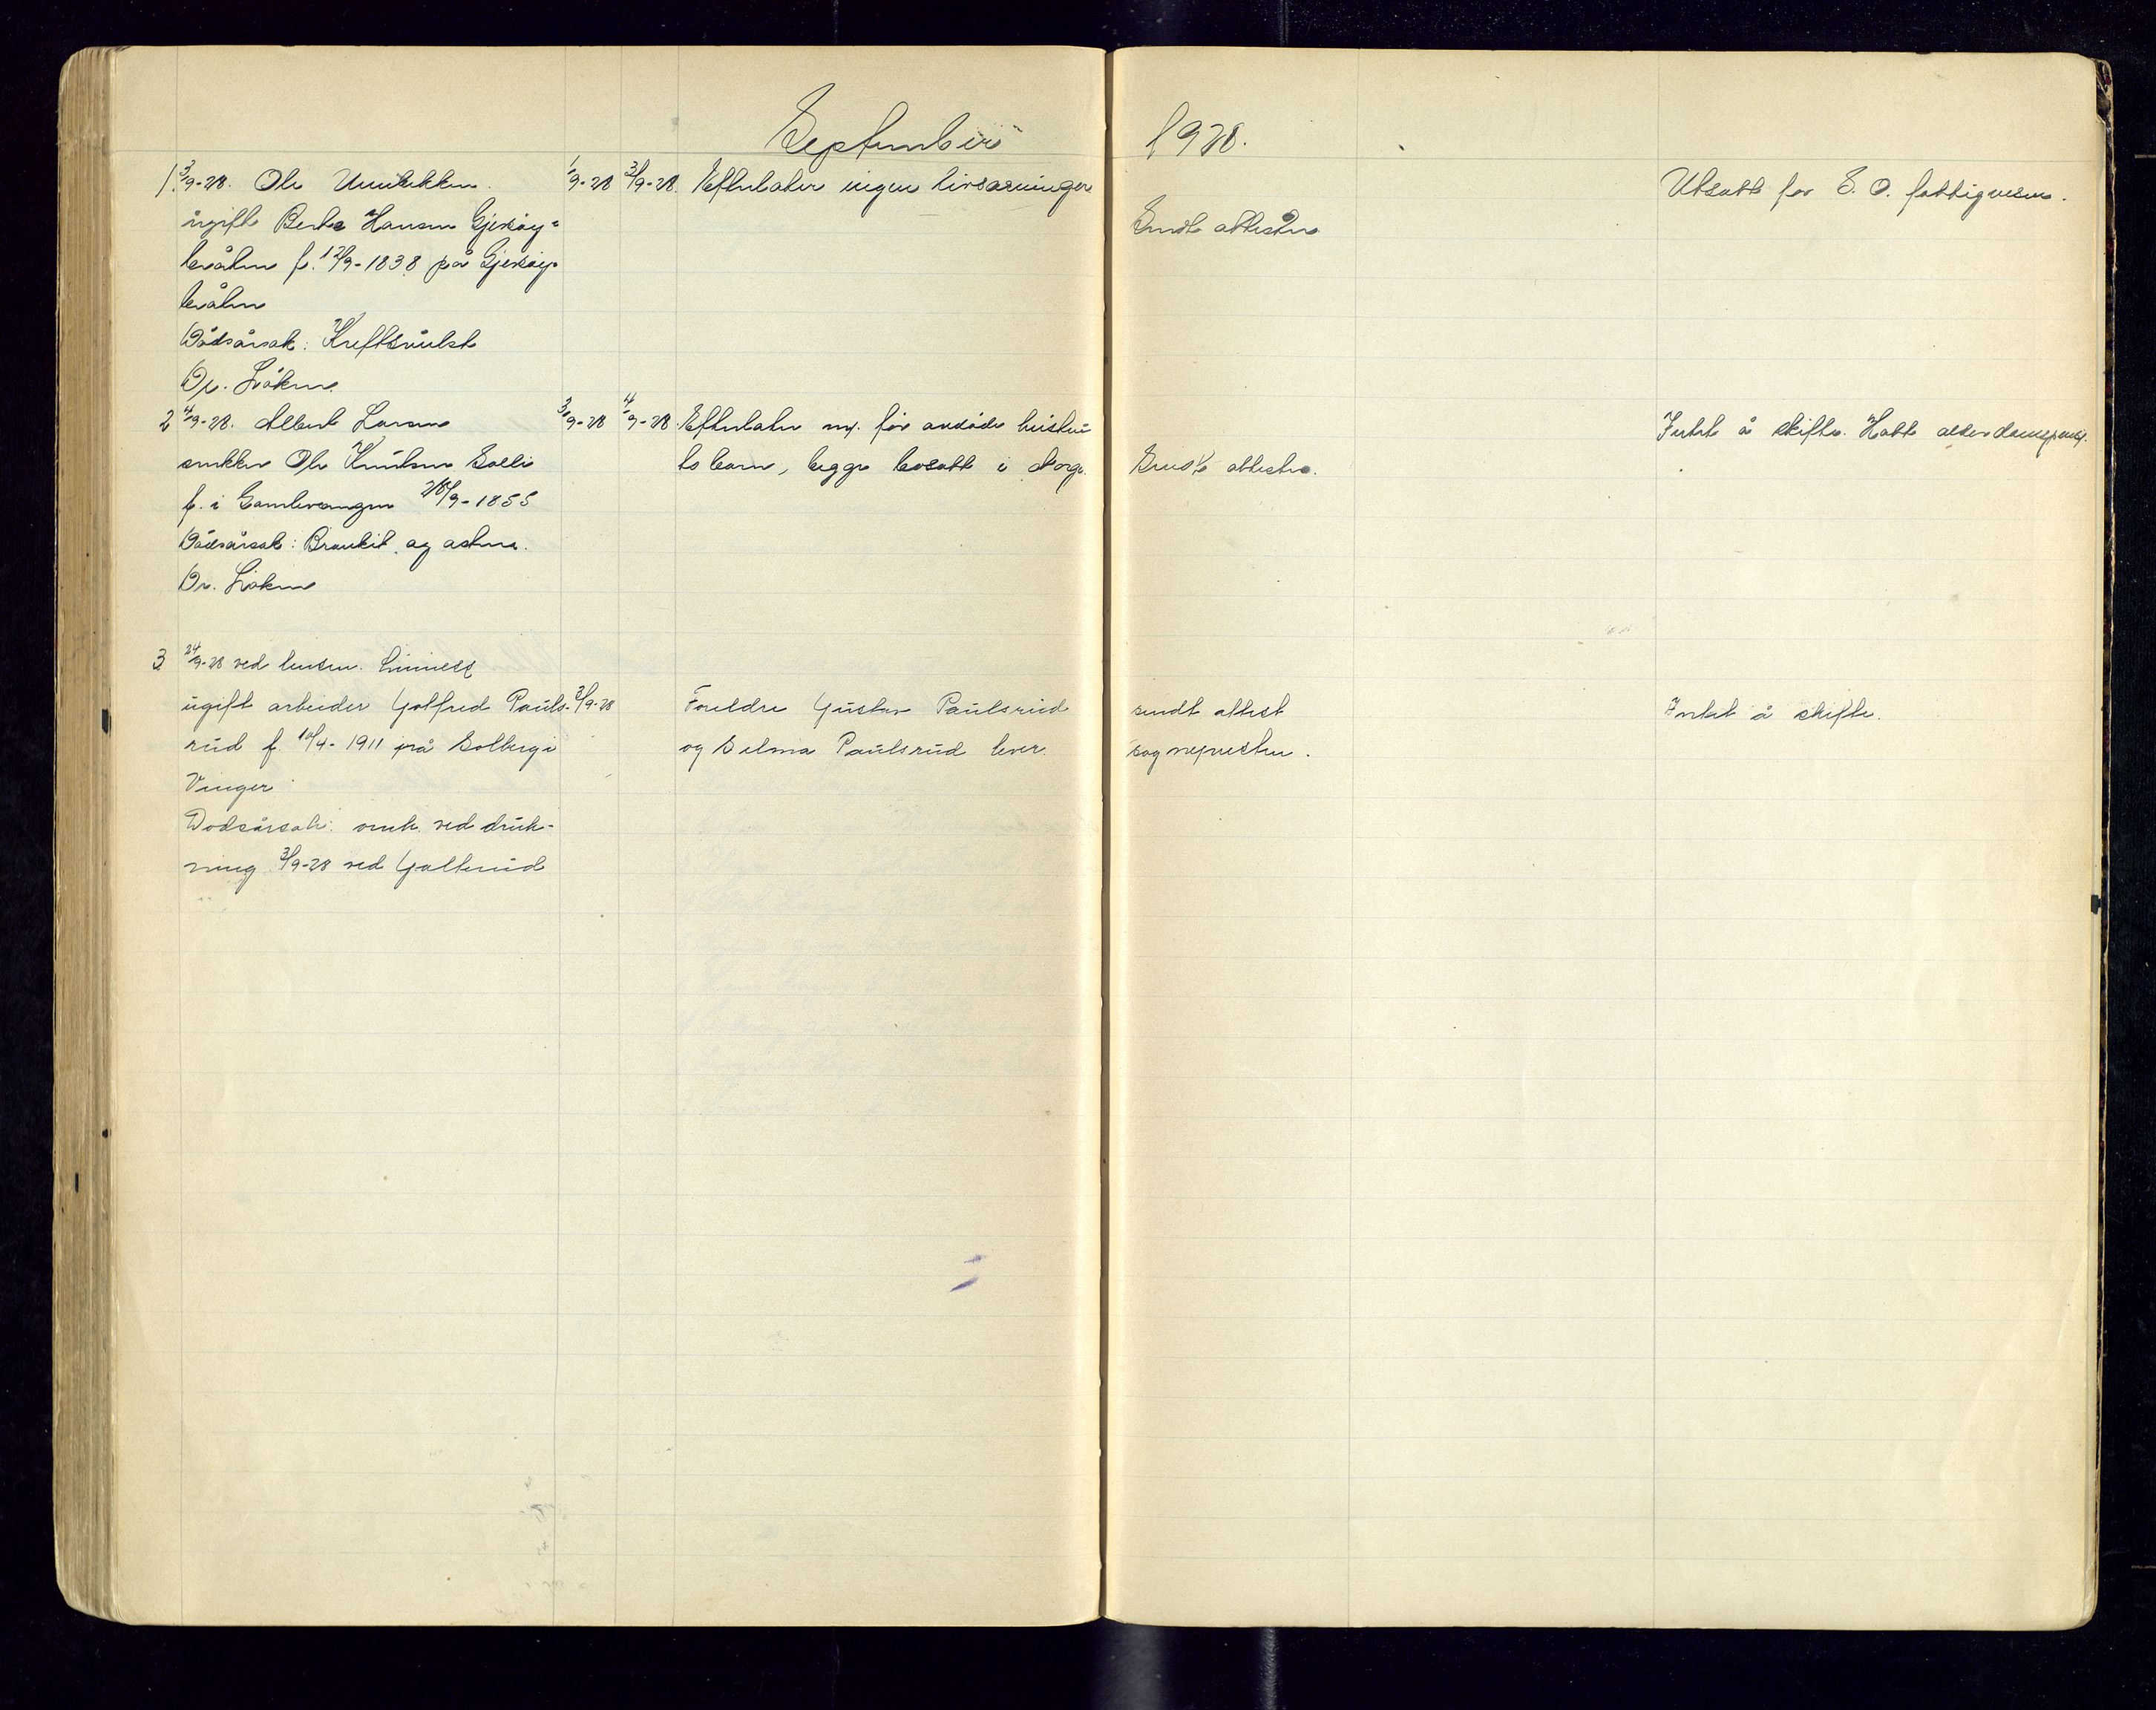 September 1928.
1. 3/9-28. Ole Unnebekken.
ugift Berte Hansen Gjersøy=
bråten f. 12/9-1838 på Gjersøy-
bråten
Dødsårsak: Kreftsvulst
Dr. Løken.
1/9-28 3/9-28. Efterlater ingen livsarvinger
Sendt attesten
Utsatt for S. O. fattigvesen.
2 4/9-28. Albert Larsen
enkem Ole Knutsen Solli
f. i Gamlevangen 28/9-1855
Dødsårsak: Bronkit. og astma.
Dr. Løken
3/9-28 4/9-28. Efterlater m. før avdøde hustru
to barn, begge bosatt i Norge.
Sendt attesten.
Intet å skifte. Hatt alderdomspensj.
3 24/9-28 ved lensm.
ugift arbeider Golfred Pauls-
rud f. 10/4-1911 på Solberg i
Vinger
Dødsårsak: omk. ved druk-
ning 3/9-28 ved Galterud
3/9-28
Foreldre Gustav Paulsrud
og Selma Paulsrud lever.
sendt attest
sognepresten.
Intet å skifte.